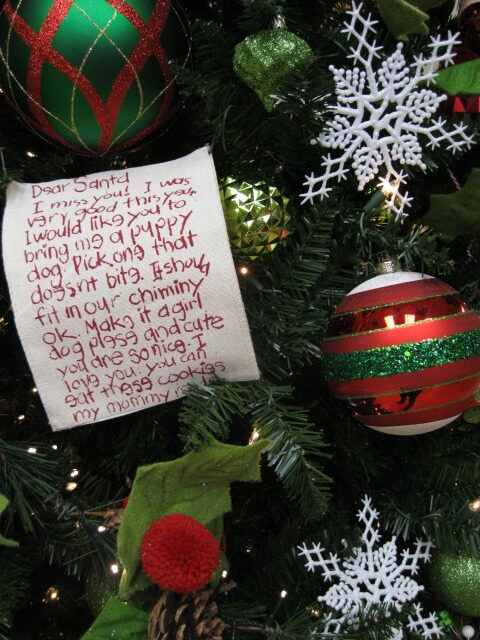 Dear Santa
I miss you! I was
very good this year
I would like you to
bring me a puppy
dog. Pick one that
doesnt bite. It shoud
fit in our chiminy
ok. Make it a girl
dog please and cute
you are so nice. I
love you. you can
eat these cookies
my mommy